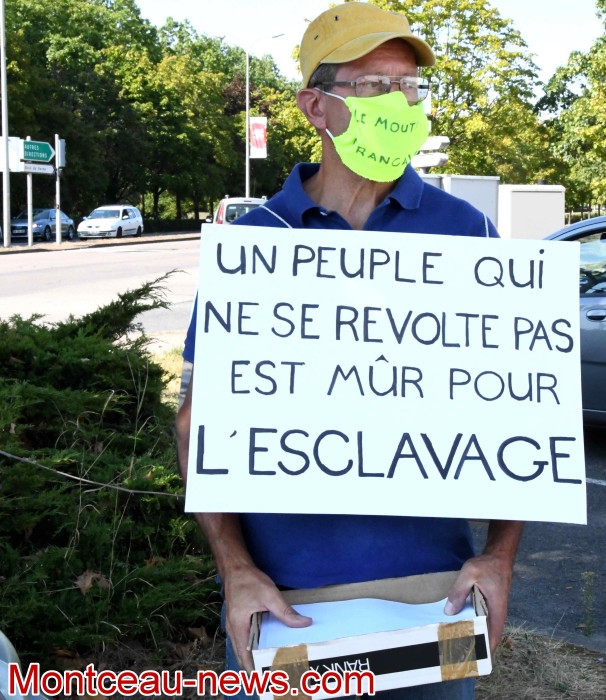 AUTRES
DIRECTIONS
LE MOUT
FRANÇAI
UN PEUPLE QUi
NE SE REVOLTE PAS
EST MÛR POUR
L'ESCLAVAGE
RANK
Montceau-news.com